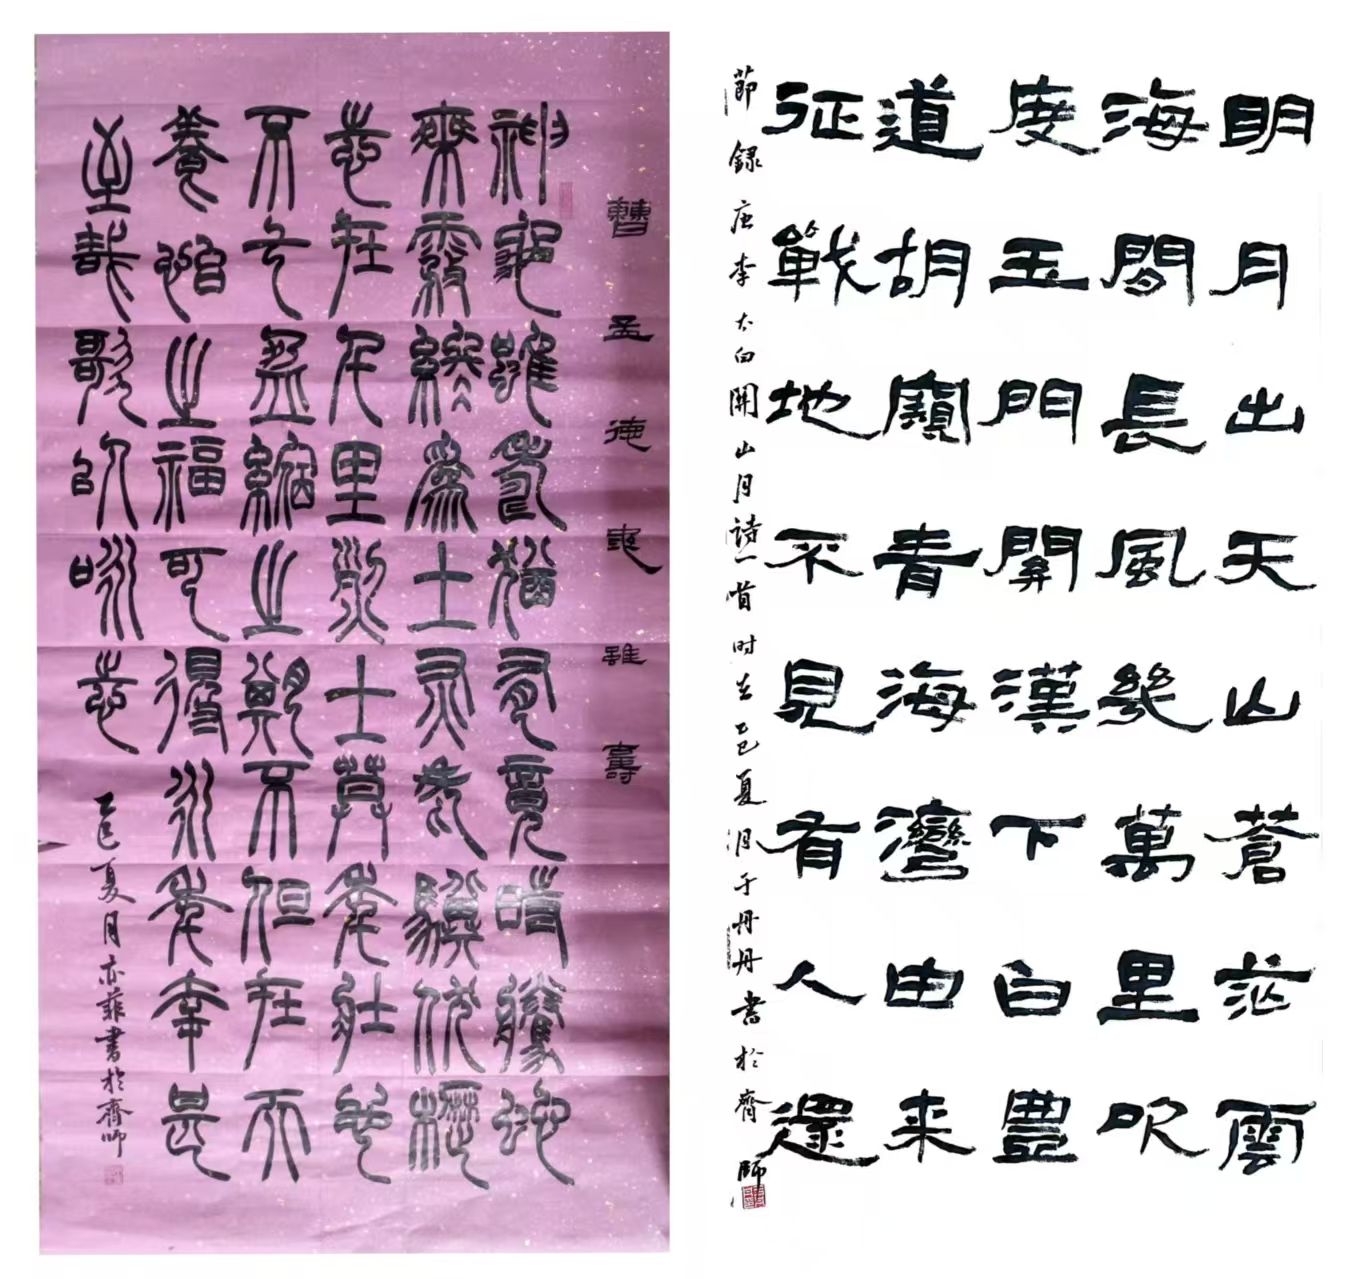 曹孟德龜雖壽
神龜雖壽猶有竟時騰蛇
乘霧終為土灰老驥伏櫪
志在千里烈士莫年壯心
不已盈縮之期不但在天
養怡之福可得永年幸甚
至哉歌以詠志
乙巳夏月亦菲書於齊師
明月出天山蒼茫雲
海間長風幾萬里吹
度玉門關漢下白豊
道胡窺青海灣由来
征戰地不見有人還
節錄唐李太白關山月詩一首時在乙巳夏月于丹丹書於齊師